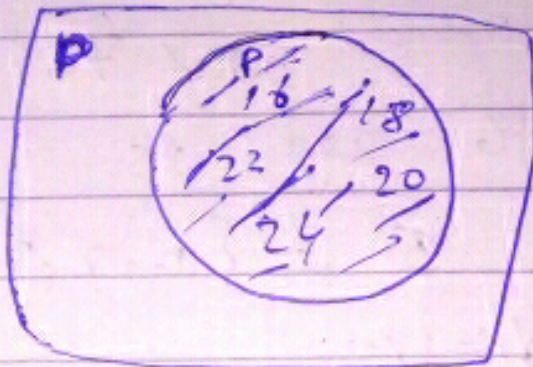 P
P
16
18
22
20
24